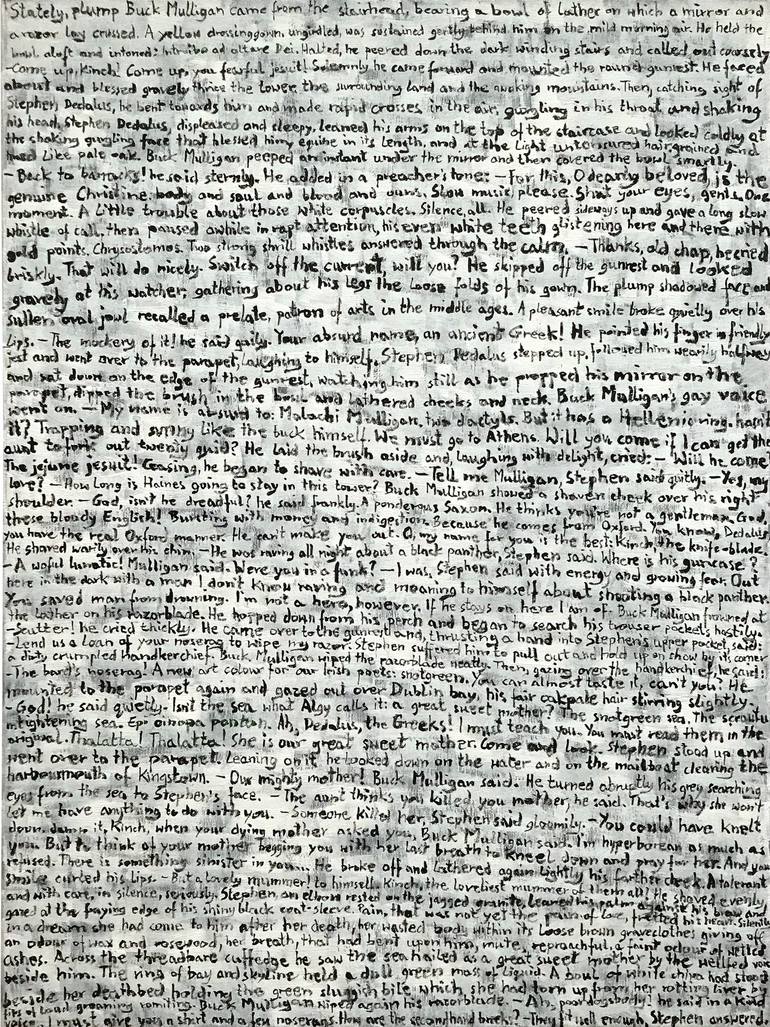 Stately, plump Buck Mulligan came from the stairhead, bearing a bowl of lather on which a mirror and
a razor lay crossed. A yellow dressinggown, ungirdled, was sustained gently behind him on the mild morning air. He held the
bowl aloft and intoned: Introibo ad altare Dei. Halted, he peered down the dark winding stairs and called out coarsely
-Come up, Kinch! Come up, you fearful jesuit! Solemnly he came forward and mounted the round gunrest. He faced
about and blessed gravely thrice the tower, the surrounding land and the awaking mountains. Then, catching sight of
Stephen Dedalus, he bent towards him and made rapid crosses in the air, gurgling in his throat and shaking
his head. Stephen Dedalus, displeased and sleepy, leaned his arms on the top of the staircase and looked coldly at
the shaking gurgling face that blessed him, equine in its length, and at the light untonsured hair, grained and
hued like pale oak. Buck Mulligan peeped an instant under the mirror and then covered the bowl smartly
- Back to barracks! he said sternly. He added in a preacher's tone: - For this, O dearly beloved, is the
genuine Christine: body and soul and blood and ouns. Slow music, please. Shut your eyes, gents. One
moment. A little trouble about those white corpuscles. Silence, all. He peered sideways up and gave a long slow
whistle of call, then paused awhile in rapt attention, his even white teeth glistening here and there with
gold points. Chrysostomos. Two strong shrill whistles answered through the calm. - Thanks, old chap, he cried
briskly. That will do nicely. Switch off the current, will you? He skipped off the gunrest and looked
gravely at his watcher, gathering about his legs the loose folds of his gown. The plump shadowed face and
sullen oval jowl recalled a prelate, patron of arts in the middle ages. A pleasant smile broke quietly over his
lips. - The mockery of it! he said gaily. Your absurd name, an ancient Greek! He pointed his finger in friendly
jest and went over to the parapet, laughing to himself. Stephen Dedalus stepped up, followed him wearily halfway
and sat down on the edge of the gunrest, watching him still as he propped his mirror on the
parapet, dipped the brush in the bowl and lathered cheeks and neck. Buck Mulligan's gay voice
went on. - My name is absurd to: Malachi Mulligan, two dactyls. But it has a Hellenic ring, hasn't
it? Tripping and sunny like the buck himself. We must go to Athens. Will you come if I can get the
aunt to fork out twenty quid? He laid the brush aside and, laughing with delight, cried: - Will he come?
The jejune jesuit! Ceasing, he began to shave with care. - Tell me Mulligan, Stephen said quietly. - Yes, my
love? - How long is Haines going to stay in this tower? Buck Mulligan showed a shaven cheek over his right
shoulder. - God, isn't he dreadful? he said frankly. A ponderous Saxon. He thinks you're not a gentleman. God,
these bloody English! Bursting with money and indigestion. Because he comes from Oxford. You know, Dedalus
you have the real Oxford manner. He can't make you out. O, my name for you is the best: Kinch, the knife-blade.
He shaved warily over his chin. - He was raving all night about a black panther, Stephen said. Where is his guncase?
- A woful lunatic! Mulligan said. Were you in a funk? - I was, Stephen said with energy and growing fear. Out
here in the dark with a man I don't know raving and moaning to himself about shooting a black panther.
You saved man from drowning. I'm not a hero, however. If he stays on here I am off. Buck Mulligan frowned at
the lather on his razorblade. He hopped down from his perch and began to search his trouser pockets hastily.
- Scutter! he cried thickly. He came over to the gunrest and, thrusting a hand into Stephen's upper pocket, said:
- Lend us a loan of your noserag to wipe my razor. Stephen suffered him to pull out and hold up on show by its corner
a dirty crumpled handkerchief. Buck Mulligan wiped the razorblade neatly. Then, gazing over the handkerchief, he said:
- The bard's noserag! A new art colour for our Irish poets: snotgreen. You can almost taste it, can't you? He
mounted to the parapet again and gazed out over Dublin bay, his fair oakpale hair stirring slightly.
- God! he said quietly. Isn't the sea what Algy calls it: a great sweet mother? The snotgreen sea. The scrotum
tightening sea. Epi oinopa ponton. Ah, Dedalus, the Greeks! I must teach you. You must read them in the
original. Thalatta! Thalatta! She is our great sweet mother. Come and look. Stephen stood up and
went over to the parapet. Leaning on it, he looked down on the water and on the mailboat clearing the
harbourmouth of Kingstown. - Our mighty mother! Buck Mulligan said. He turned abruptly his grey searching
eyes from the sea to Stephen's face. - The aunt thinks you killed you mother, he said. That's why she won't
let me have anything to do with you. - Someone killed her, Stephen said gloomily. - You could have knelt
down, damn it, Kinch, when your dying mother asked you, Buck Mulligan said. I'm hyperborean as much as
you. But to think of your mother begging you with her last breath to kneel down and pray for her. And you
refused. There is something sinister in you... He broke off and lathered again lightly his farther cheek. A tolerant
smile curled his lips. - But a lovely mummer! to himself. Kinch, the loveliest mummer of them all! He shaved evenly
and with care, in silence, seriously. Stephen, an elbow rested on the jagged granite, leaned his palm against his brow and
gazed at the fraying edge of his shiny black coat-sleeve. Pain, that was not yet the pain of love, fretted his heart. Silently
in a dream she had come to him after her death, her wasted body within its loose brown graveclothes giving off
an odour of wax and rosewood, her breath, that had bent upon him, mute, reproachful, a faint odour of wetted
ashes. Across the threadbare cuffedge he saw the sea hailed as a great sweet mother by the wellfed voice
beside him. The ring of bay and skyline held a dull green mass of liquid. A bowl of white china had stood
beside her deathbed holding the green sluggish bile which she had torn up from her rotting liver by
fits of loud groaning vomiting. Buck Mulligan wiped again his razorblade. - Ah, poor dogsbody! he said in a kind
voice. I must give you a shirt and a few noserags. How are the secondhand breeks? - They fit well enough, Stephen answered.